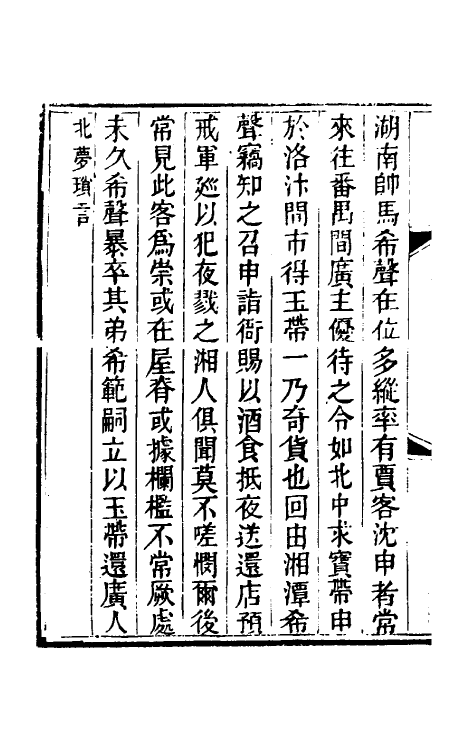 湖南帥馬希聲在位多縱率有賈客沈申者常
來往番禺間廣主優待之令如北中求寶帶申
於洛汴間市得玉帶一乃奇貨也回由湘潭希
聲竊知之召申詣衙賜以酒食抵夜送還店預
戒軍廵以犯夜戮之湘人俱聞莫不嗟憫爾後
常見此客爲祟或在屋脊或據欄檻不常厥處
未久希聲暴卒其弟希範嗣立以玉帶還廣人
北夢瑣言